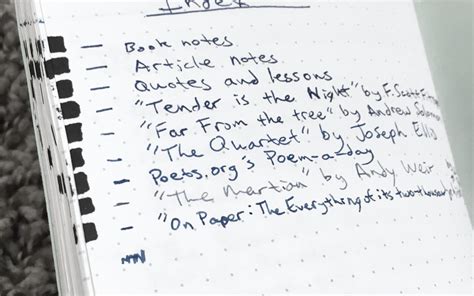 Index
– Book notes
– Article notes
– Quotes and lessons
– "Tender is the Night" by F. Scott
– "Far From the tree" by Andrew
– "The Quartet" by Joseph Ellis
– Poets.org's Poem-a-day
– "The Martian" by Andy Weir
– "On Paper: The Everything of its two-thousand